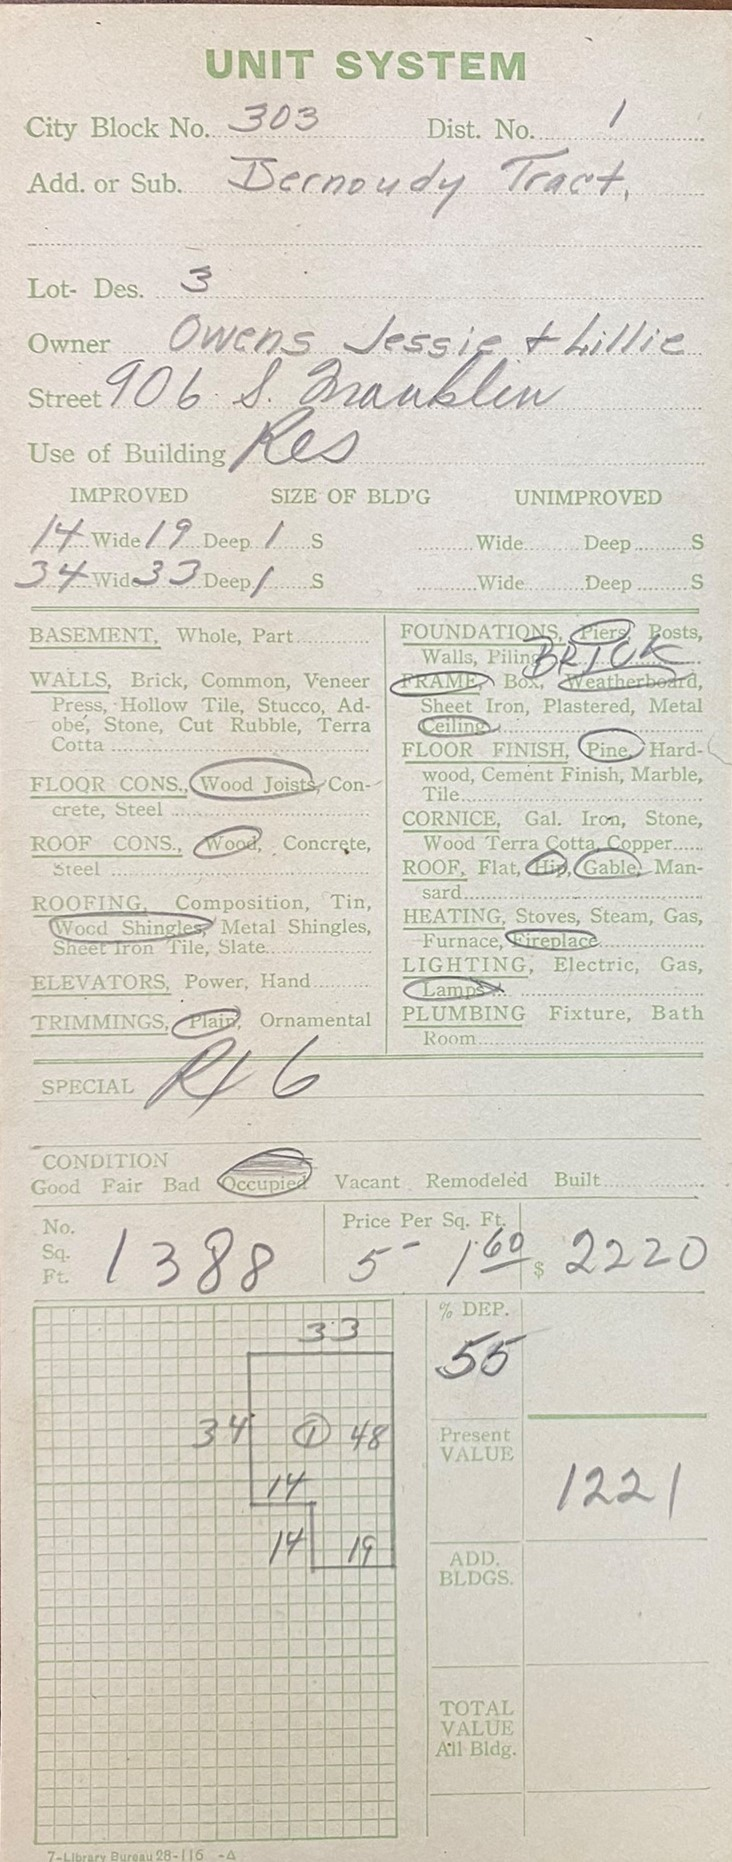 UNIT SYSTEM
City Block No. 303 Dist. No. 1
Add. or Sub. Bernoudy Tract.
Lot- Des. 3
Owner Owens Jessie + Lillie
Street 906 S. Franklin
Use of Building Res
IMPROVED SIZE OF BLD'G UNIMPROVED
14 Wide 19 Deep 1 S Wide Deep S
34 Wide 33 Deep 1 S Wide Deep S
BASEMENT, Whole, Part
WALLS, Brick, Common, Veneer
Press, Hollow Tile, Stucco, Ad-
obe, Stone, Cut Rubble, Terra
Cotta
FLOOR CONS., Wood Joists, Con-
crete, Steel
ROOF CONS., Wood, Concrete,
Steel
ROOFING, Composition, Tin,
Wood Shingles, Metal Shingles,
Sheet Iron Tile, Slate
ELEVATORS, Power, Hand
TRIMMINGS, Plain, Ornamental
FOUNDATIONS, Piers, Posts,
Walls, Piling BRICK
FRAME, Box, Weatherboard,
Sheet Iron, Plastered, Metal
Ceiling
FLOOR FINISH, Pine, Hard-
wood, Cement Finish, Marble,
Tile
CORNICE, Gal. Iron, Stone,
Wood Terra Cotta, Copper
ROOF, Flat, Hip, Gable, Man-
sard
HEATING, Stoves, Steam, Gas,
Furnace, Fireplace
LIGHTING, Electric, Gas,
Lamps
PLUMBING Fixture, Bath
Room
SPECIAL 6
CONDITION
Good Fair Bad Occupied Vacant Remodeled Built
No.
Sq.
Ft. 1388
Price Per Sq. Ft.
5- 1 60 $ 2220
33
34 1 48
14
14 19
% DEP.
55
Present
VALUE
1221
ADD.
BLDGS.
TOTAL
VALUE
All Bldg.
7-Library Bureau 28-116 -A